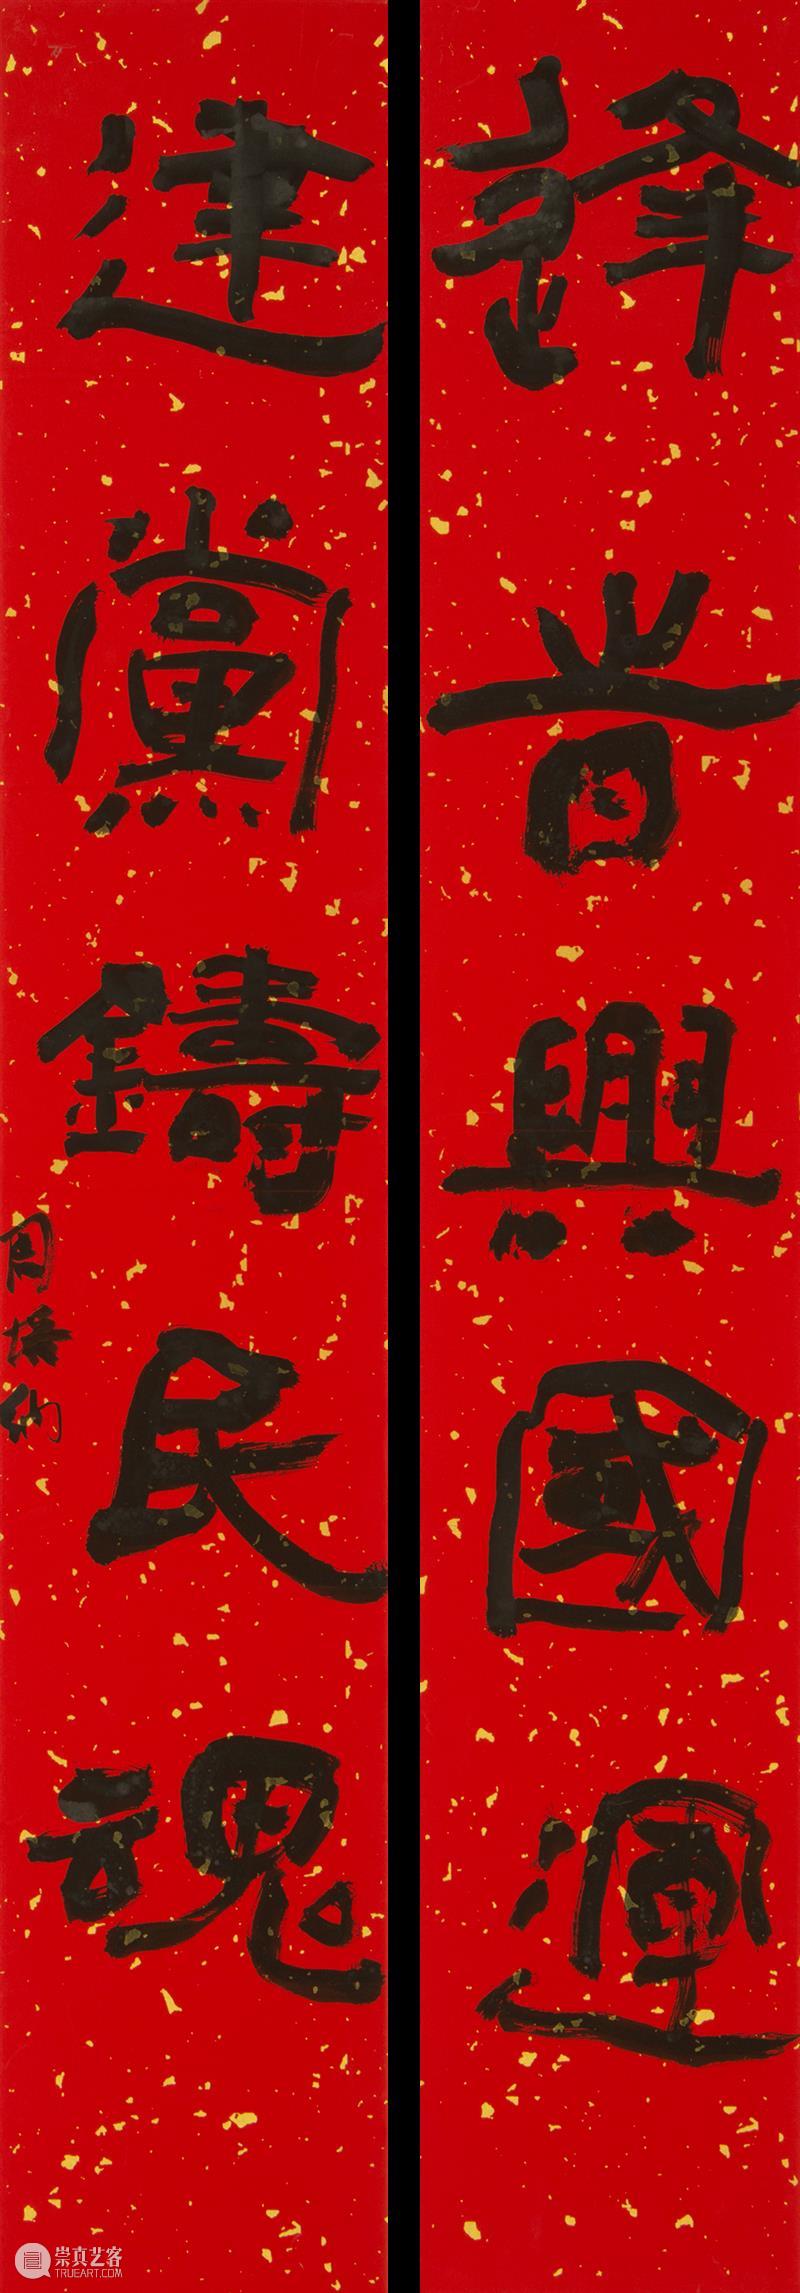 逢旹興國運
建黨鑄民魂
周培纳
崇真艺客
TRUEART.COM